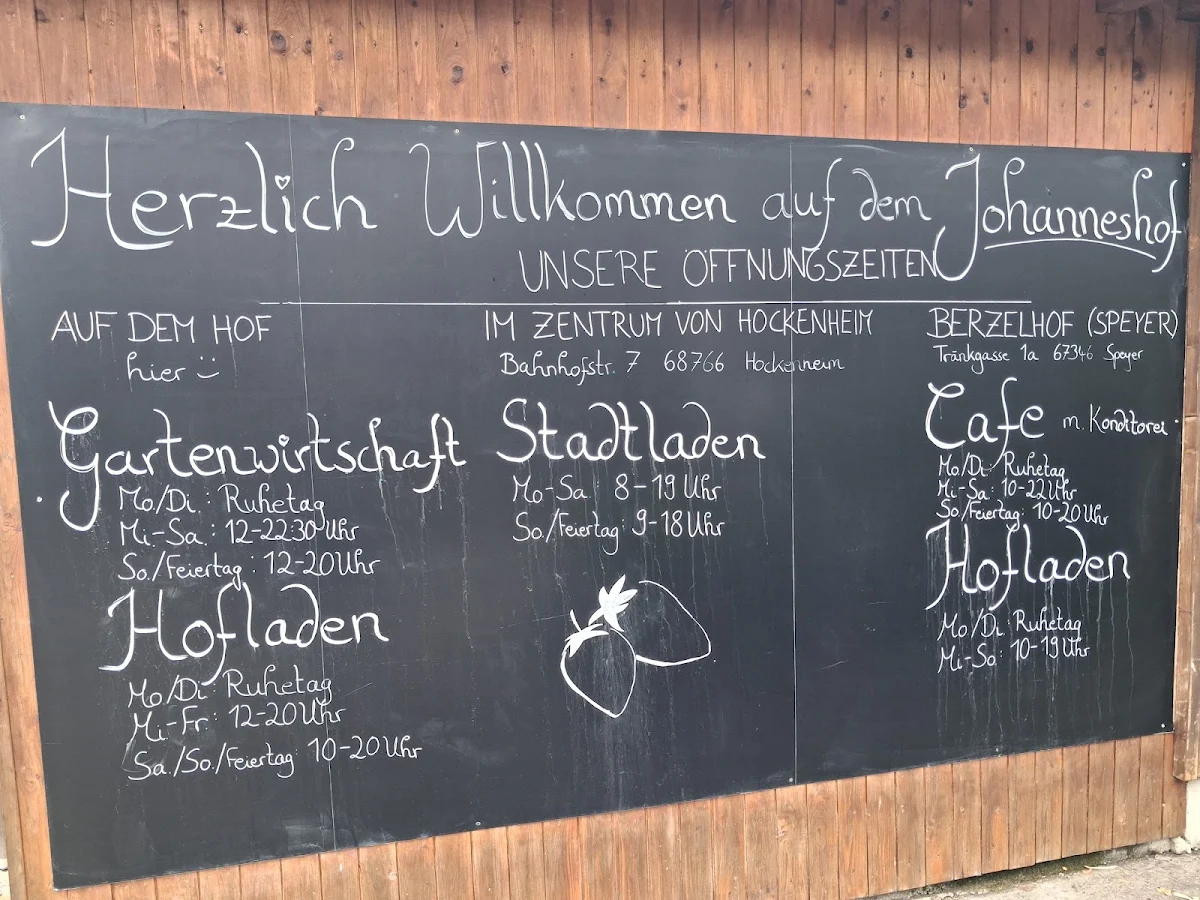 Herzlich Willkommen auf dem Johanneshof
UNSERE ÖFFNUNGSZEITEN
AUF DEM HOF
hier :)
Gartenwirtschaft
Mo/Di: Ruhetag
Mi-Sa.: 12-22:30 Uhr
So./Feiertag: 12-20 Uhr
Hofladen
Mo/Di: Ruhetag
Mi-Fr: 12-20 Uhr
Sa./So./Feiertag: 10-20 Uhr
IM ZENTRUM VON HOCKENHEIM
Bahnhofstr. 7 68766 Hockenheim
Stadtladen
Mo-Sa.: 8-19 Uhr
So./Feiertag: 9-18 Uhr
BERZELHOF (SPEYER)
Tränkgasse 1a 67346 Speyer
Cafe m. Konditorei
Mo/Di: Ruhetag
Mi-Sa: 10-22 Uhr
So/Feiertag: 10-20 Uhr
Hofladen
Mo/Di: Ruhetag
Mi-So: 10-19 Uhr